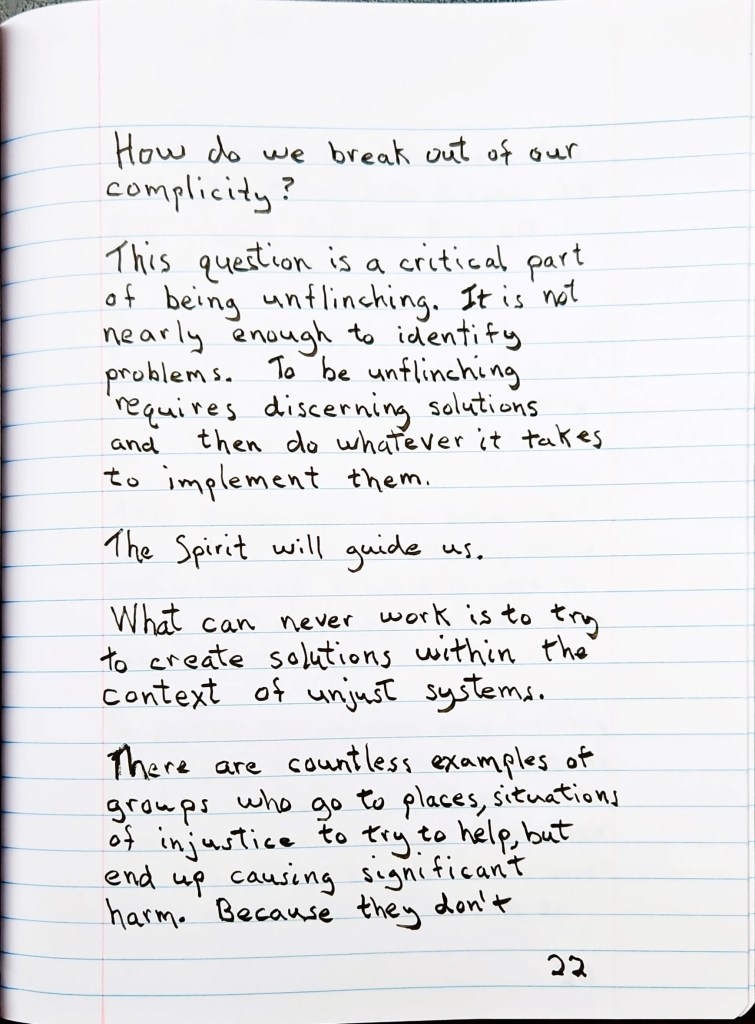 How do we break out of our
complicity?
This question is a critical part
of being unflinching. It is not
nearly enough to identify
problems. To be unflinching
requires discerning solutions
and then do whatever it takes
to implement them.
The Spirit will guide us.
What can never work is to try
to create solutions within the
context of unjust systems.
There are countless examples of
groups who go to places, situations
of injustice to try to help, but
end up causing significant
harm. Because they don't
22